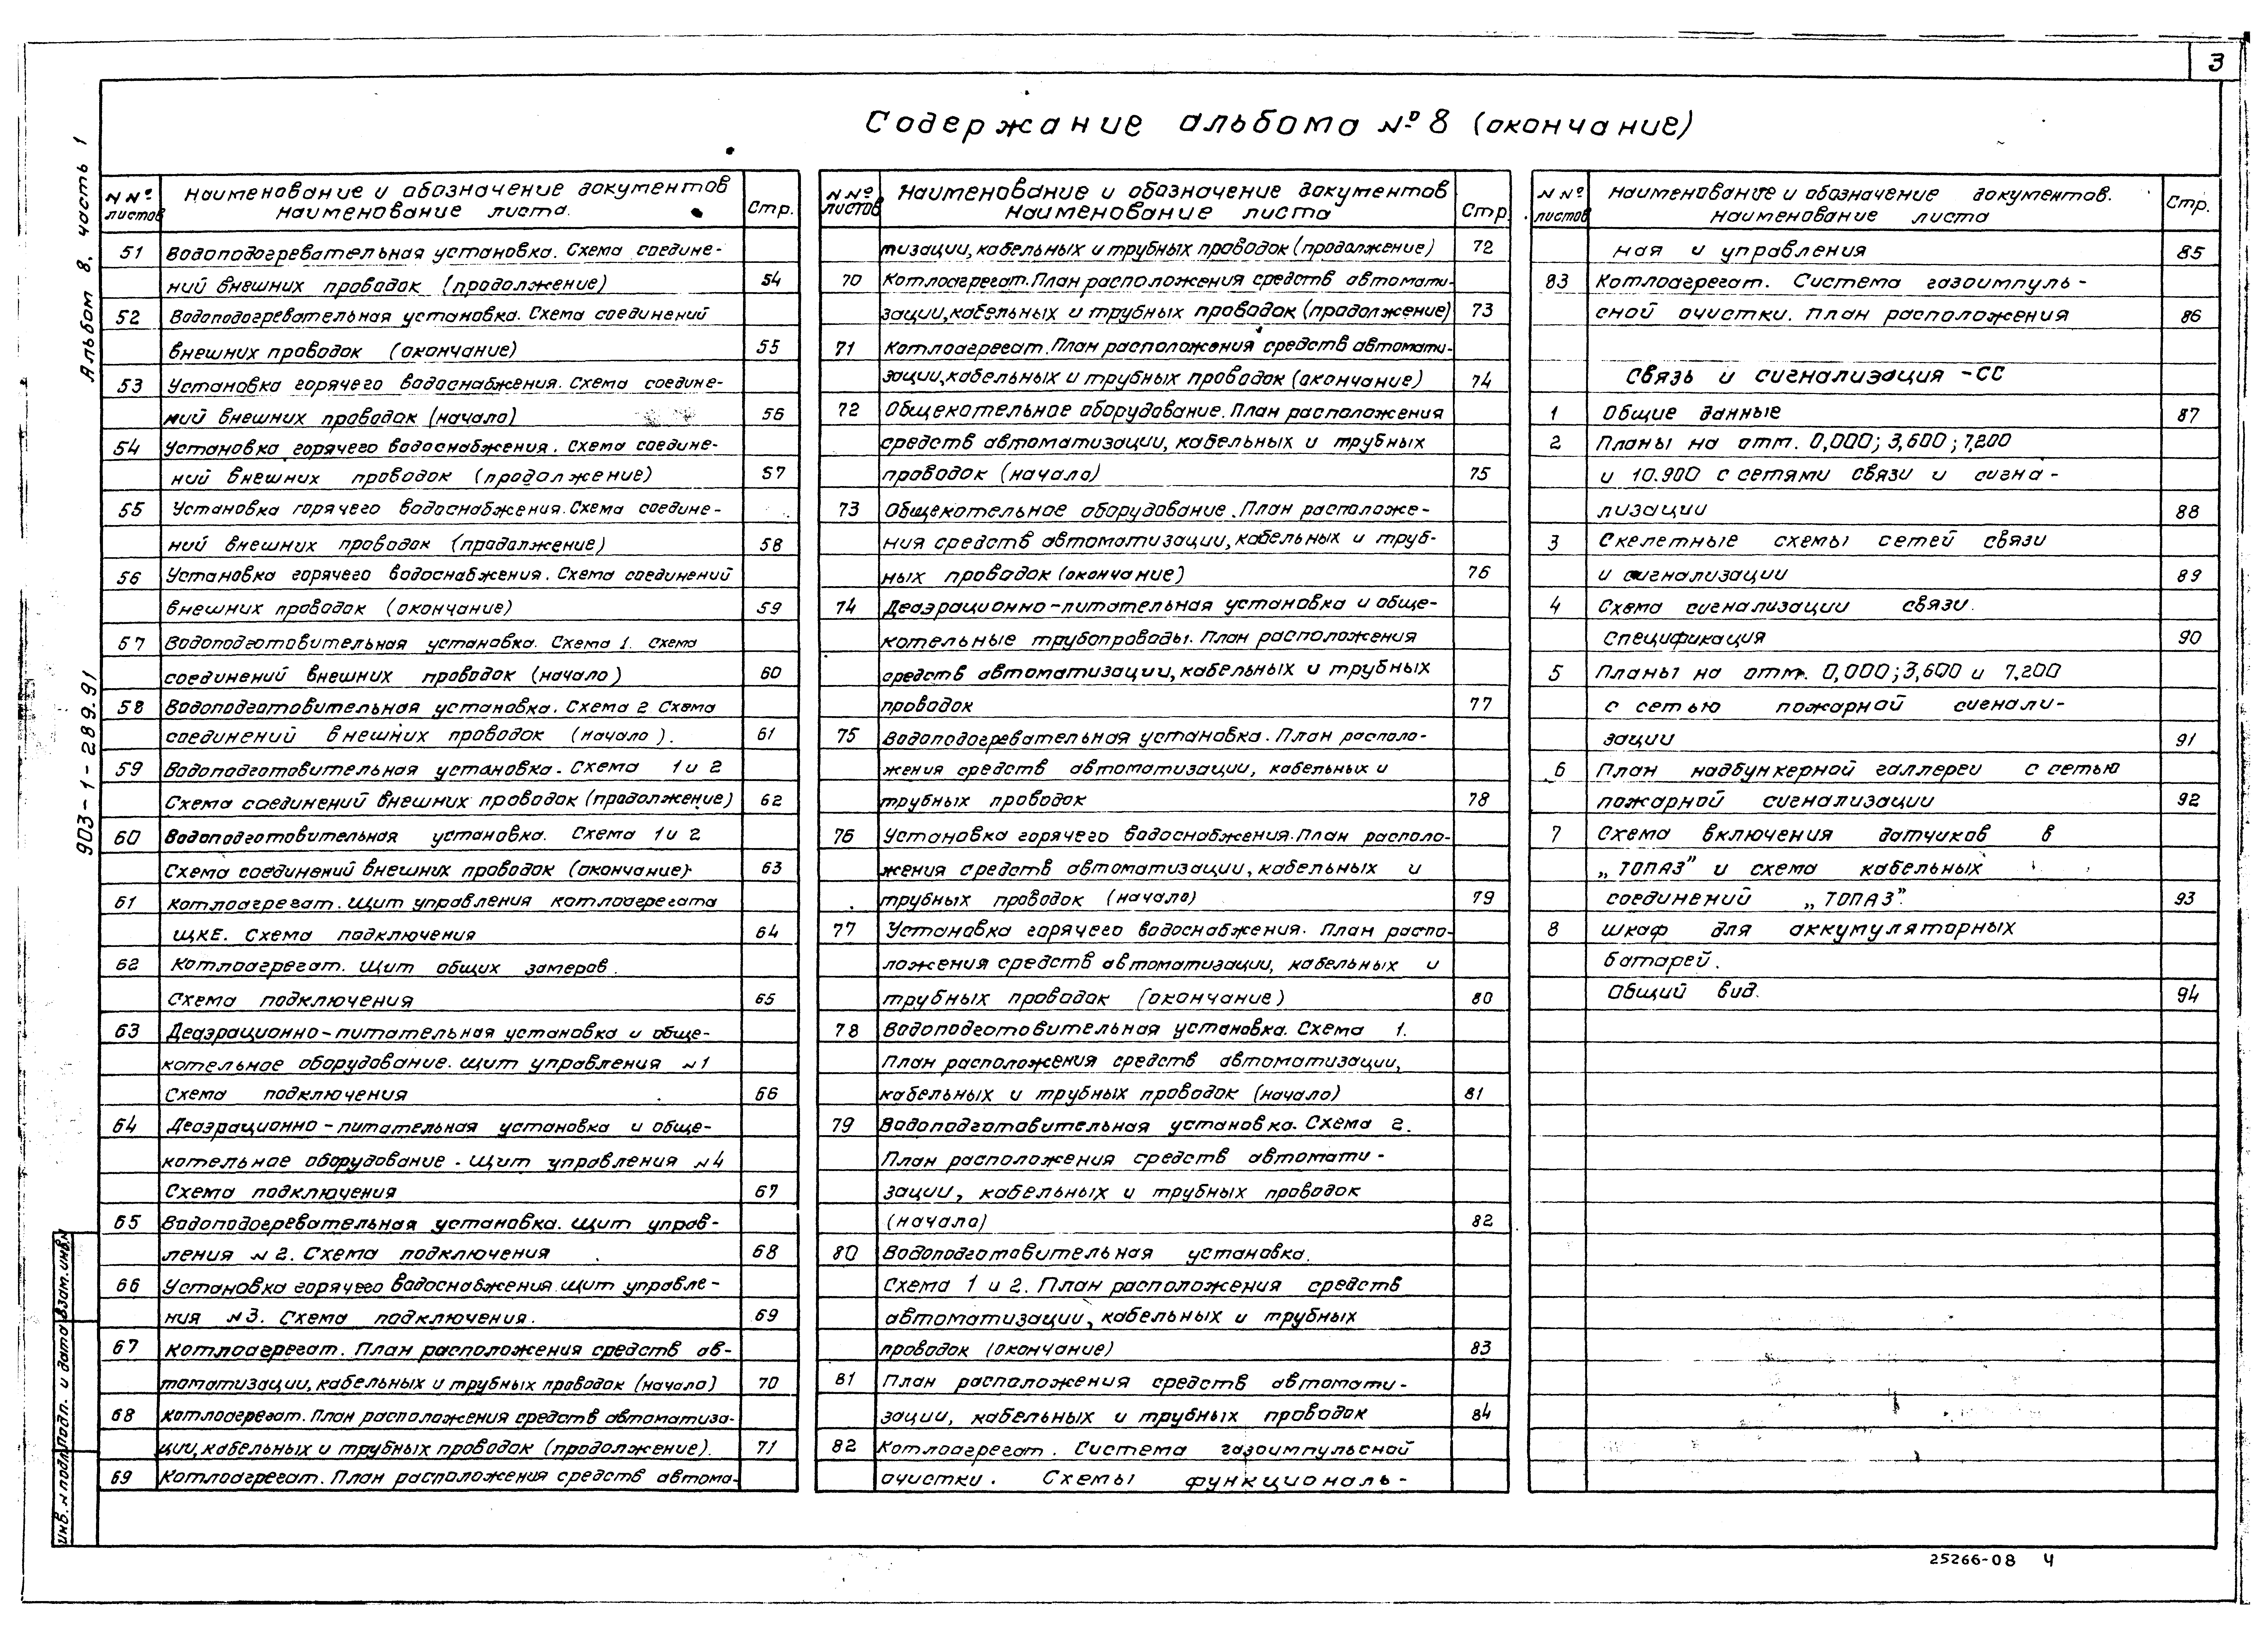 3
Содержание альбома №8 (окончание)
Альбом 8. часть 1
903-1-289.91
NNº листов
Наименование и обозначение документов
Наименование листа.
Стр.
51 Водоподогревательная установка. Схема соедине-
ний внешних проводок (продолжение) 54
52 Водоподогревательная установка. Схема соединений
внешних проводок (окончание) 55
53 Установка горячего водоснабжения. Схема соедине-
ний внешних проводок (начало) 56
54 Установка горячего водоснабжения. Схема соедине-
ний внешних проводок (продолжение) 57
55 Установка горячего водоснабжения. Схема соедине-
ний внешних проводок (продолжение) 58
56 Установка горячего водоснабжения. Схема соединений
внешних проводок (окончание) 59
57 Водоподготовительная установка. Схема 1. Схема
соединений внешних проводок (начало) 60
58 Водоподготовительная установка. Схема 2 Схема
соединений внешних проводок (начало). 61
59 Водоподготовительная установка. Схема 1 и 2
Схема соединений внешних проводок (продолжение) 62
60 Водоподготовительная установка. Схема 1 и 2
Схема соединений внешних проводок (окончание) 63
61 Котлоагрегат. Щит управления котлоагрегата
ЩКЕ. Схема подключения 64
62 Котлоагрегат. Щит общих замеров.
Схема подключения 65
63 Деаэрационно-питательная установка и обще-
котельное оборудование. Щит управления N1
Схема подключения 66
64 Деаэрационно-питательная установка и обще-
котельное оборудование. Щит управления N4
Схема подключения 67
65 Водоподогревательная установка. Щит управ-
ления N2. Схема подключения 68
66 Установка горячего водоснабжения. Щит управле-
ния N3. Схема подключения. 69
67 Котлоагрегат. План расположения средств ав-
томатизации, кабельных и трубных проводок (начало) 70
68 Котлоагрегат. План расположения средств автоматиза-
ции, кабельных и трубных проводок (продолжение). 71
69 Котлоагрегат. План расположения средств автома-
NNº листов
Наименование и обозначение документов
Наименование листа
Стр.
тизации, кабельных и трубных проводок (продолжение) 72
70 Котлоагрегат. План расположения средств автомати-
зации, кабельных и трубных проводок (продолжение) 73
71 Котлоагрегат. План расположения средств автомати-
зации, кабельных и трубных проводок (окончание) 74
72 Общекотельное оборудование. План расположения
средств автоматизации, кабельных и трубных
проводок (начало) 75
73 Общекотельное оборудование. План расположе-
ния средств автоматизации, кабельных и труб-
ных проводок (окончание) 76
74 Деаэрационно-питательная установка и обще-
котельные трубопроводы. План расположения
средств автоматизации, кабельных и трубных
проводок 77
75 Водоподогревательная установка. План располо-
жения средств автоматизации, кабельных и
трубных проводок 78
76 Установка горячего водоснабжения. План располо-
жения средств автоматизации, кабельных и
трубных проводок (начало) 79
77 Установка горячего водоснабжения. План распо-
ложения средств автоматизации, кабельных и
трубных проводок (окончание) 80
78 Водоподготовительная установка. Схема 1.
План расположения средств автоматизации,
кабельных и трубных проводок (начало) 81
79 Водоподготовительная установка. Схема 2.
План расположения средств автомати-
зации, кабельных и трубных проводок
(начало) 82
80 Водоподготовительная установка.
Схема 1 и 2. План расположения средств
автоматизации, кабельных и трубных
проводок (окончание) 83
81 План расположения средств автомати-
зации, кабельных и трубных проводок 84
82 Котлоагрегат. Система газоимпульсной
очистки. Схемы функциональ-
NNº листов
Наименование и обозначение документов.
Наименование листа
Стр.
ная и управления 85
83 Котлоагрегат. Система газоимпуль-
сной очистки. План расположения 86
Связь и сигнализация - СС
1 Общие данные 87
2 Планы на отм. 0,000; 3,600; 7,200
и 10.900 с сетями связи и сигна-
лизации 88
3 Скелетные схемы сетей связи
и сигнализации 89
4 Схема сигнализации связи.
Спецификация 90
5 Планы на отм. 0,000; 3,600 и 7,200
с сетью пожарной сигнали-
зации 91
6 План надбункерной галлереи с сетью
пожарной сигнализации 92
7 Схема включения датчиков в
„ТОПАЗ" и схема кабельных
соединений „ТОПАЗ". 93
8 Шкаф для аккумуляторных
батарей.
Общий вид. 94
Инв. N подл. Подп. и дата Взам. инв. N
25266-08 4